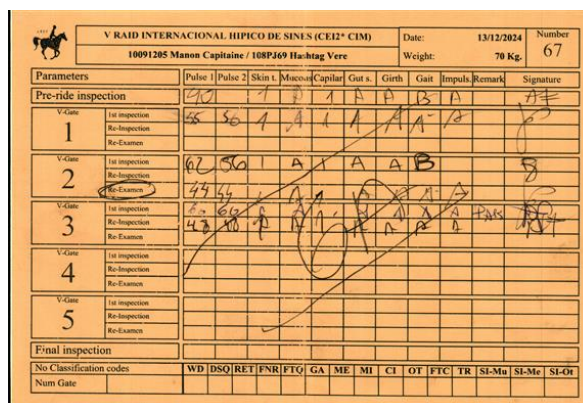 V RAID INTERNACIONAL HIPICO DE SINES (CEI2* CIM)
Date: 13/12/2024
Number
10091205 Manon Capitaine / 108PJ69 Hashtag Vere
Weight: 70 Kg.
67
Parameters Pulse 1 Pulse 2 Skin t. Mucosas Capilar Gut s. Girth Gait Impuls. Remark Signature
Pre-ride inspection 40 1 A 1 A A B A
V-Gate 1
1st inspection 55 56 1 A 1 A A A A
Re-Inspection
Re-Examen
V-Gate 2
1st inspection 62 56 1 A 1 A A B
Re-Inspection
Re-Examen 44 44 A A A A
V-Gate 3
1st inspection A A A A A
Re-Inspection 48 A A A
Re-Examen
V-Gate 4
1st inspection
Re-Inspection
Re-Examen
V-Gate 5
1st inspection
Re-Inspection
Re-Examen
Final inspection
No Classification codes WD DSQ RET FNR FTQ GA ME MI CI OT FTC TR SI-Mu SI-Me SI-Ot
Num Gate